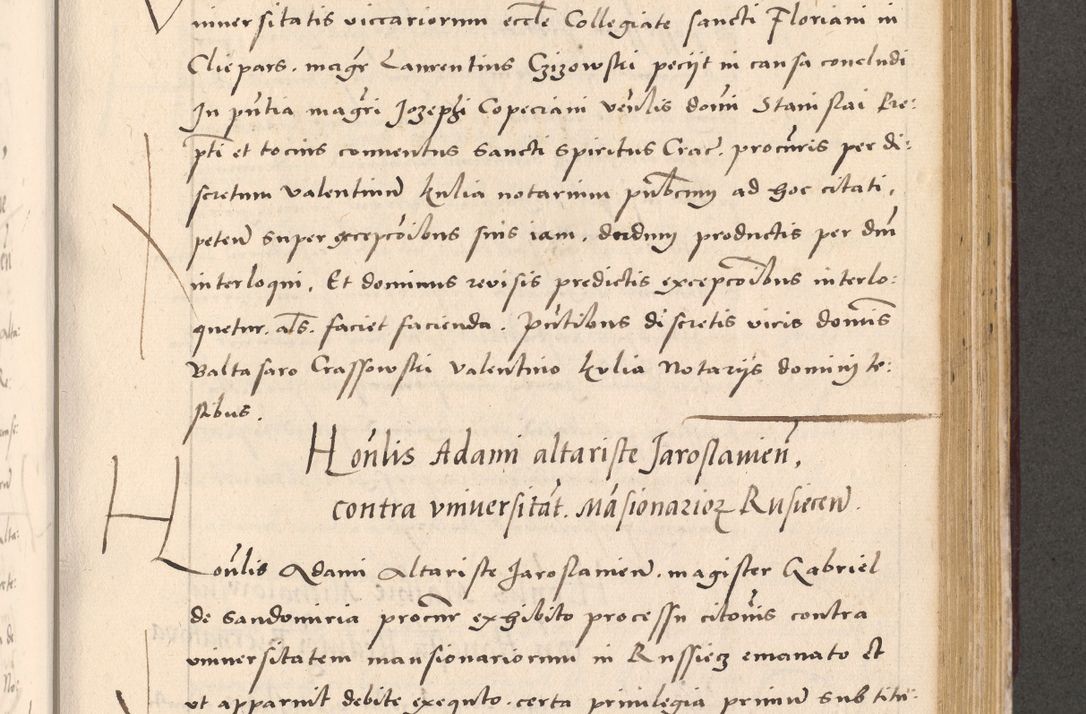 niuersitatis viccariorum eccle Collegiate sancti Floriani in
Clepars. magr Laurentius Czizowski petijt in causa concludi
In pntia magri Jozephi Copeciani venlis domi Stanislai Pre:
pti et tocius conuentus sancti spiritus Crac. procuris per di:
scretum Valentinu kulia notarium pubcum ad hoc citati,
peten super excepcoibus suis iam, dudum productis per dm
interloqui, Et dominus revisis predictis excepcoibus interlo:
quetur. als. faciet facienda. Pntibus discretis viris domis
Baltasaro Crassowski Valentino kulia Notarijs dominij te:
stibus.
Honlis Adami altariste Jaroslauien,
contra vniuersitat. Masionarior Rusiecen.
Honlis Adami Altariste Jaroslauien. magister Gabriel
de Sandomiria procur exhibito processu citouis contra
vniuersitatem mansionariorum in Russiecz emanato et
ut apparuit debite exequto. certa priuilegia primu substitu: